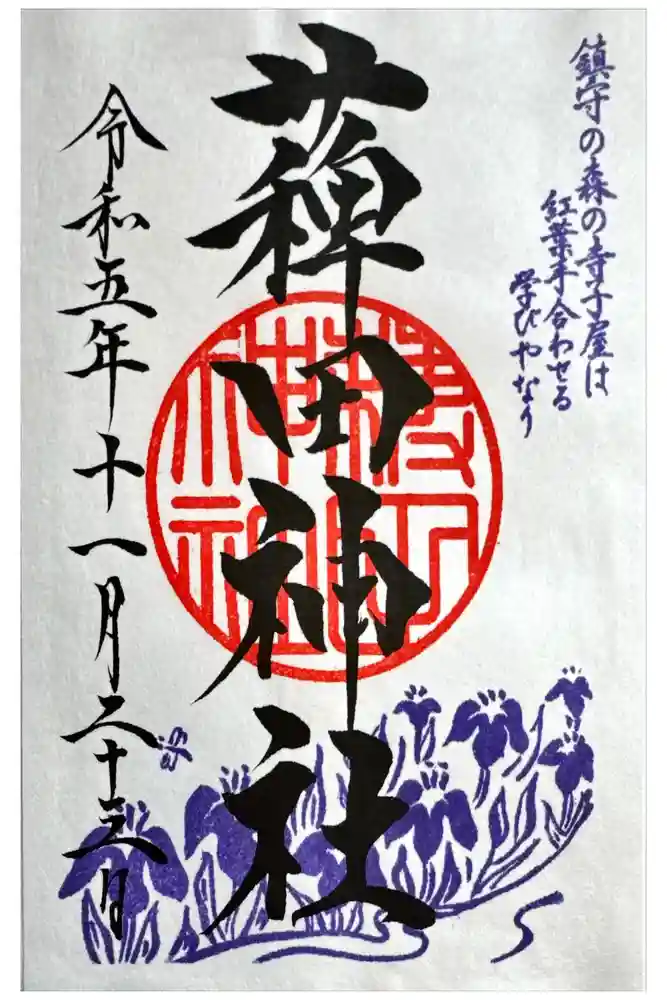 鎮守の森の寺子屋は
紅葉手合わせる
学びやなり
薭田神社
令和五年十一月二十三日